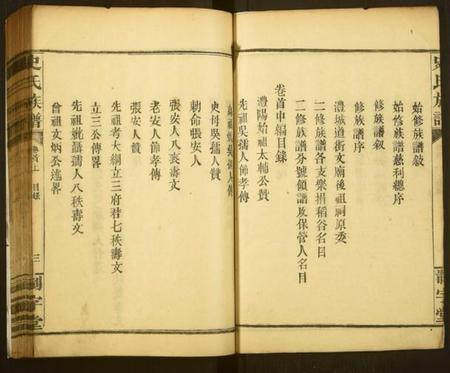 始修族譜敍
始修族譜慈利總序
修族譜敍
修族譜序
澧城道街文廟後祖祠原委
二修族譜各支樂捐稻谷名目
二修族譜分號領譜及保管人名目
卷首中編目錄
澧陽始祖太輔公贊
先祖吳孺人節孝傳
史母吳孺人贊
勅命張安人
張安人八袠壽文
老安人節孝傳
張安人贊
先祖考大綱立三府君七秩壽文
立三公傳畧
先祖妣聶孺人八秩壽文
曾祖文炳公遙畧
史氏族譜
卷首上
目錄
三